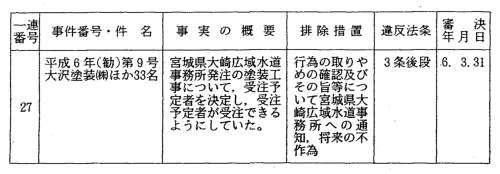 一連番号
事件番号・件名
事実の概要
排除措置
違反法条
審決年月日
27
平成6年(勧)第9号
大沢塗装㈱ほか33名
宮城県大崎広域水道
事務所発注の塗装工
事について，受注予
定者を決定し，受注
予定者が受注できる
ようにしていた。
行為の取りや
めの確認及び
その旨等につ
いて宮城県大
崎広域水道事
務所への通
知，将来の不
作為
3条後段
6. 3.31